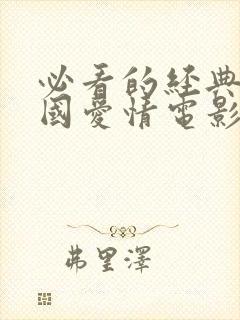 必看的經典
國愛情電影
弗里澤